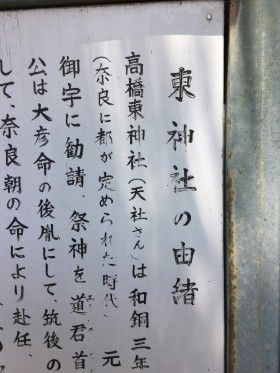 東神社の由緒
高橋東神社(天社さん)は和銅三年
(奈良に都が定められた時代) 元
御宇に勧請、祭神を道君首
公は大彦命の後胤にして、筑後の
して、奈良朝の命により赴任、